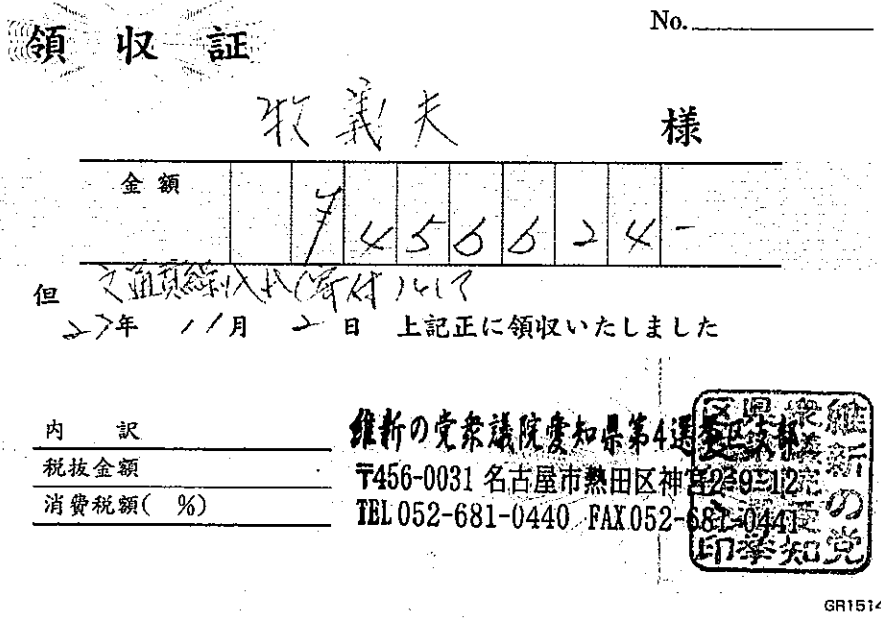 No.
領収証
牧義夫 様
金額 ¥456624-
但 文通費繰入れ(寄付)として
27年 11月 2日 上記正に領収いたしました
内訳
税抜金額
消費税額( %)
維新の党衆議院愛知県第4選挙区支部
〒456-0031 名古屋市熱田区神宮2-9-12
TEL 052-681-0440 FAX 052-681-0441
維新の党
GR1514